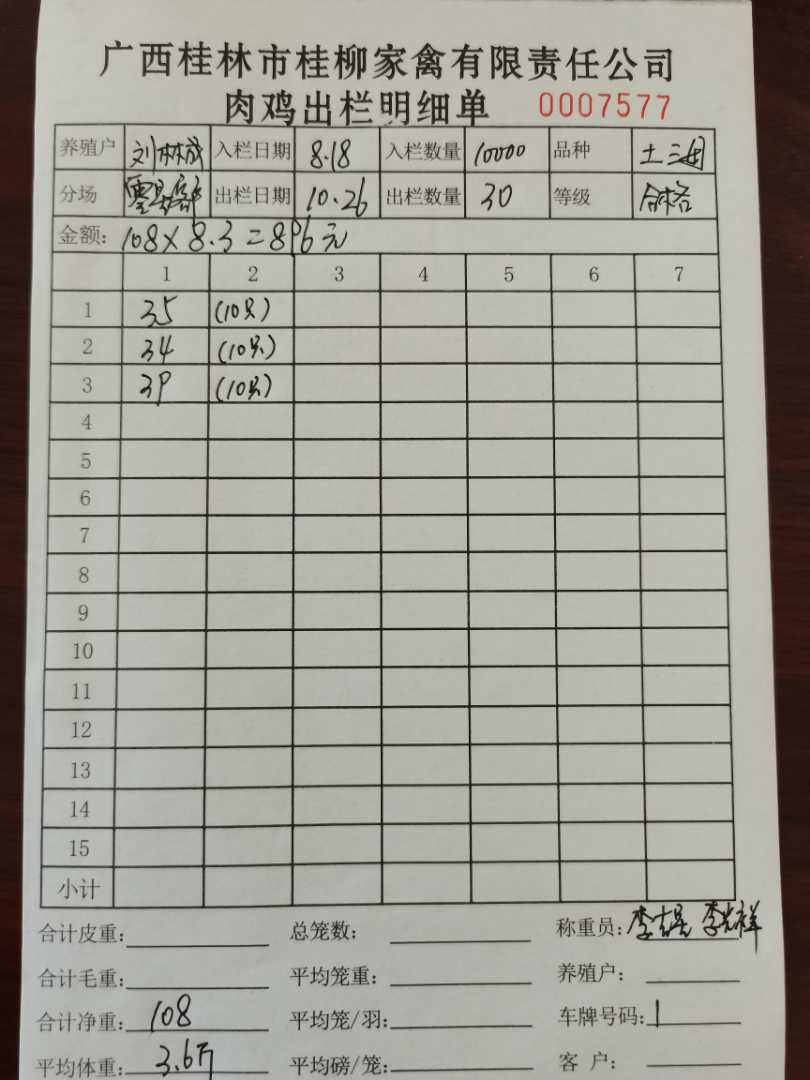 广西桂林市桂柳家禽有限责任公司
肉鸡出栏明细单 0007577
养殖户 刘林成 入栏日期 8.18 入栏数量 10000 品种 土三
分场 出栏日期 10.26 出栏数量 30 等级 合格
金额: 108 X 8.3 = 896元
1 2 3 4 5 6 7
1 35 (10只)
2 34 (10只)
3 39 (10只)
4
5
6
7
8
9
10
11
12
13
14
15
小计
合计皮重: 总笼数: 称重员: 李 李光祥
合计毛重: 平均笼重: 养殖户:
合计净重: 108 平均笼/羽: 车牌号码:
平均体重: 3.6斤 平均磅/笼: 客 户: